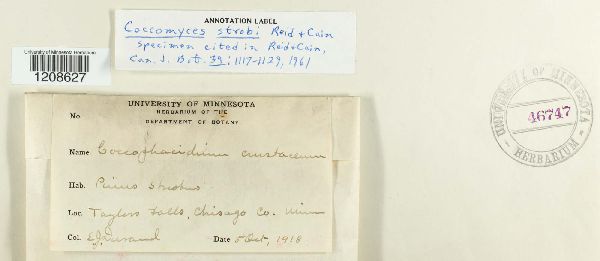 ANNOTATION LABEL
Coccomyces strobi Reid + Cain
specimen cited in Reid & Cain,
Can. J. Bot. 39: 1117-1129, 1961
University of Minnesota Herbarium
1208627
UNIVERSITY OF MINNESOTA
HERBARIUM OF THE
DEPARTMENT OF BOTANY
No.
Name Coccophacidium crustaceum
Hab. Pinus strobus
Loc. Taylors Falls, Chisago Co. Minn
Col. E.J. Durand Date 5 Oct, 1918
UNIVERSITY OF MINNESOTA
46747
HERBARIUM